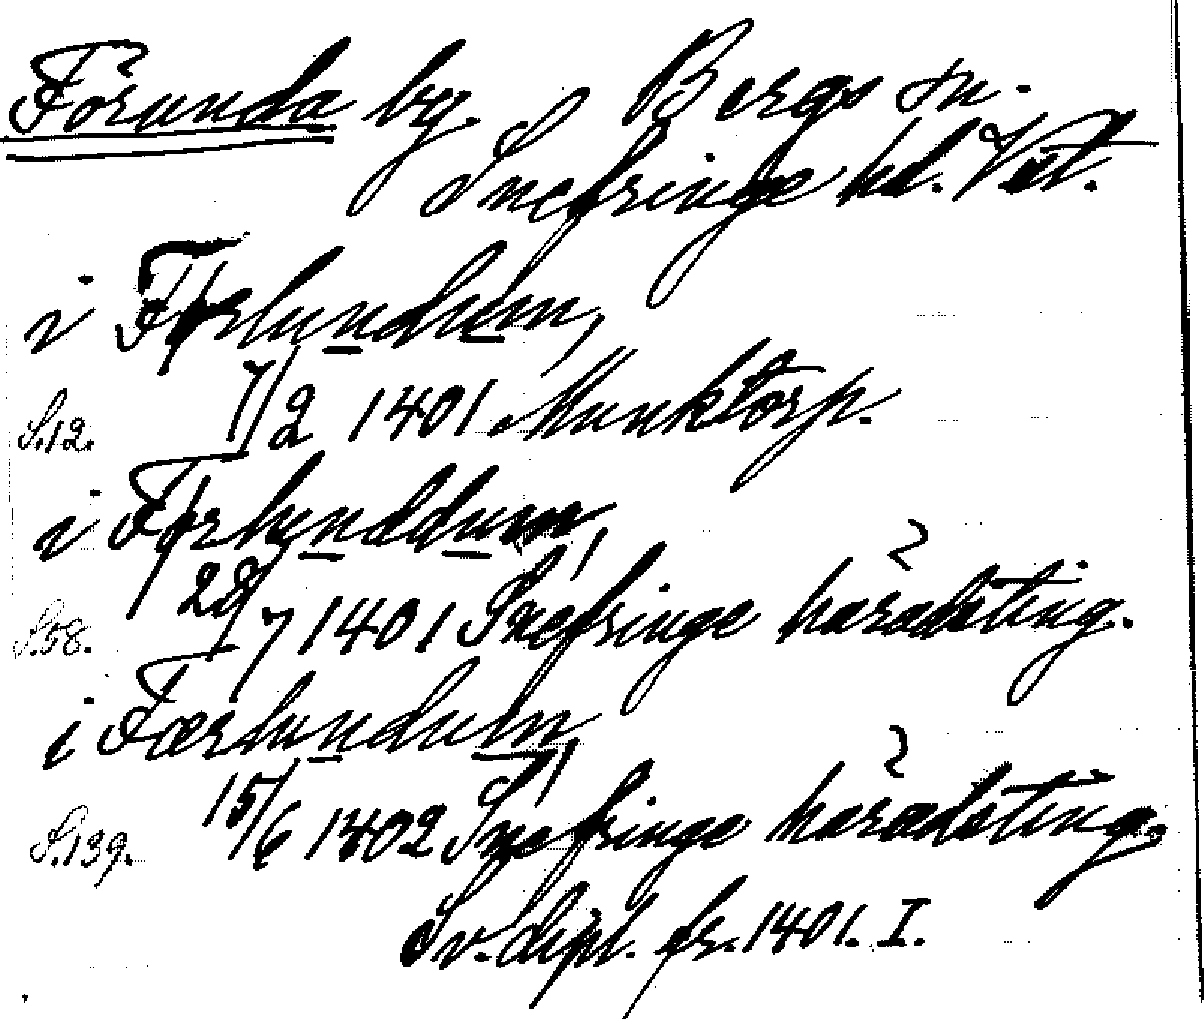 Förunda by. Bergs sn.
Snefringe hd. Vst.
i Førlundum,
S.12. 7/2 1401 Munktorp.
i Førlunddum,
S.58. 28/7 1401 Snefringe häradsting.
i Færlundum,
S.139. 15/6 1402 Snefringe häradsting.
Sv. dipl. fr. 1401. I.